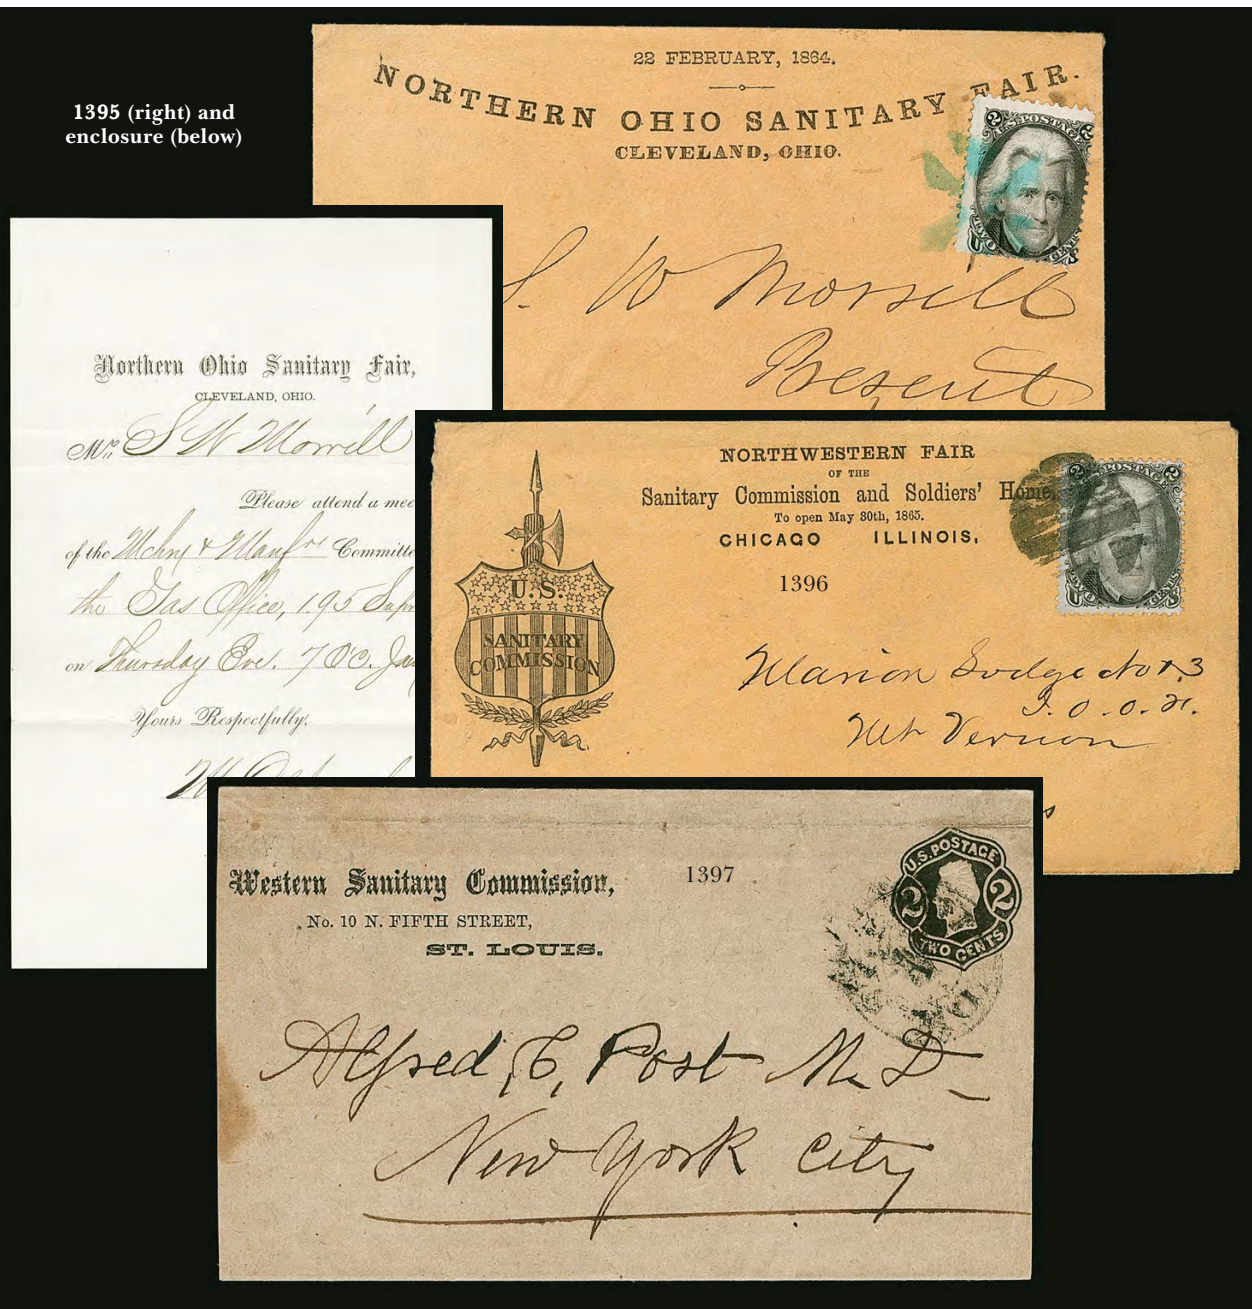 1395 (right) and
enclosure (below)
22 FEBRUARY, 1864.
NORTHERN OHIO SANITARY FAIR.
CLEVELAND, OHIO.
2 POSTAGE 2
U TWO CENTS S
S. W Morrill
Present
Northern Ohio Sanitary Fair,
CLEVELAND, OHIO.
Mr. S W Morrill
Please attend a mee
of the Mchny & Manfrs Committe
the Gas Office, 195 Supr
on Thursday Eve. 7 OC. Jan
Yours Respectfully,
NORTHWESTERN FAIR
OF THE
Sanitary Commission and Soldiers' Home,
To open May 30th, 1865.
CHICAGO ILLINOIS,
1396
2 POSTAGE 2
U TWO CENTS S
U.S.
SANITARY
COMMISSION
Marion Lodge No 13
I. O. O. F.
Mt Vernon
Western Sanitary Commission,
No. 10 N. FIFTH STREET,
ST. LOUIS.
1397
U.S. POSTAGE
2 2
TWO CENTS
Alfred, C, Post M. D
New York City